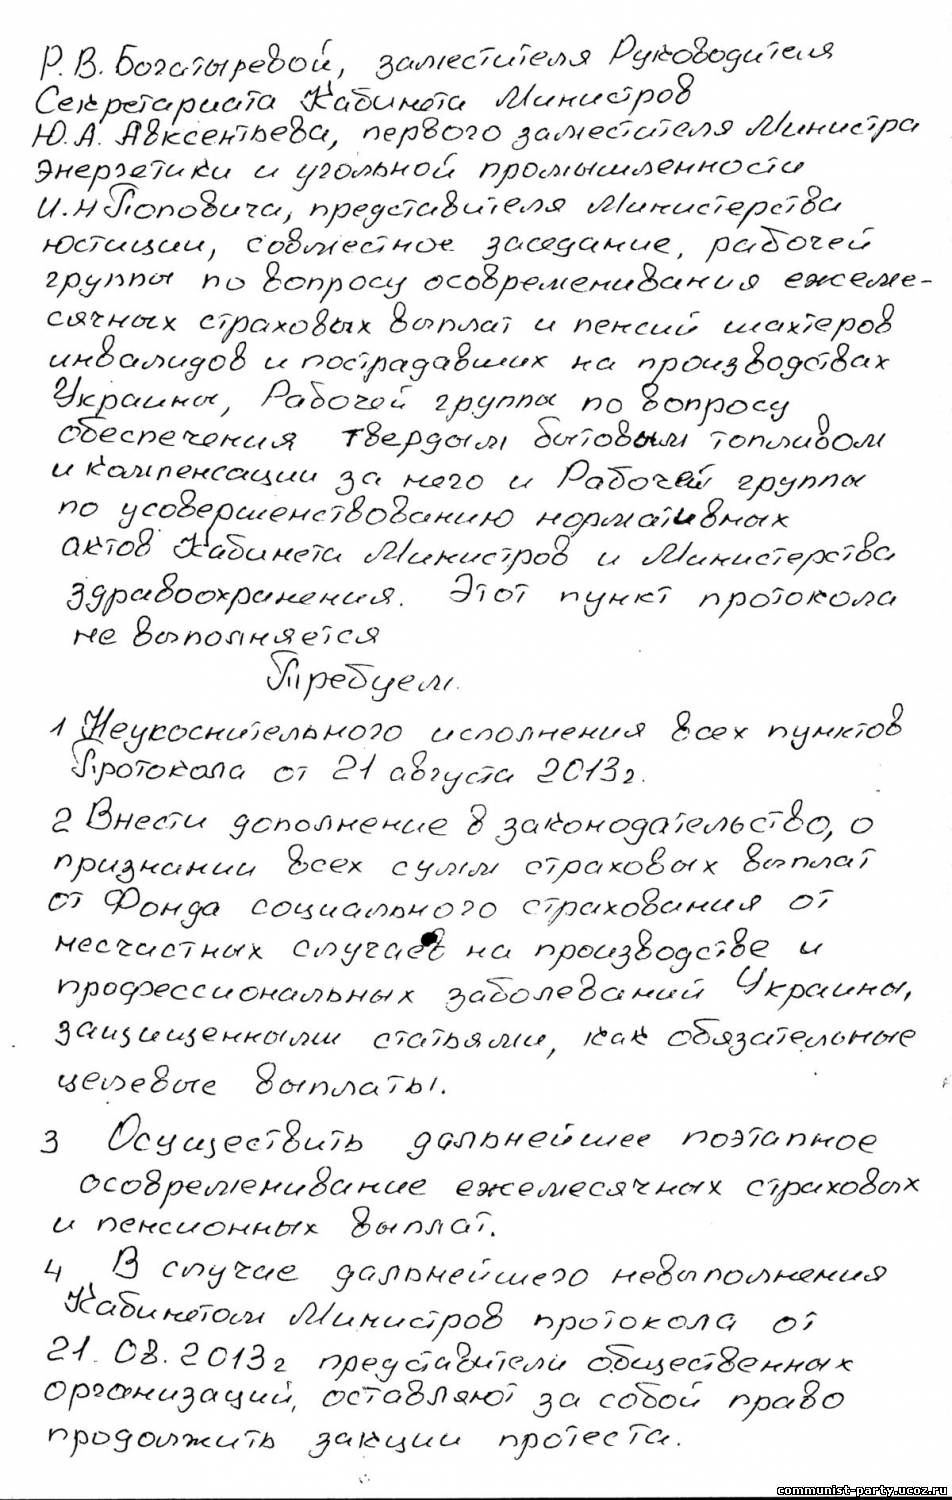 Р. В. Богатыревой, заместителя Руководителя
Секретариата Кабинета Министров
Ю. А. Авксентьева, первого заместителя Министра
энергетики и угольной промышленности
И. Н Поповича, представителя Министерства
юстиции, совместное заседание, рабочей
группы по вопросу осовременивания ежеме-
сячных страховых выплат и пенсий шахтеров
инвалидов и пострадавших на производствах
Украины, Рабочей группы по вопросу
обеспечения твердым бытовым топливом
и компенсации за него и Рабочей группы
по усовершенствованию нормативных
актов Кабинета Министров и Министерства
здравоохранения. Этот пункт протокола
не выполняется
Требуем.
1 Неукоснительного исполнения всех пунктов
Протокола от 21 августа 2013г.
2 Внести дополнение в законодательство, о
признании всех сумм страховых выплат
от Фонда социального страхования от
несчастных случаев на производстве и
профессиональных заболеваний Украины,
защищенными статьями, как обязательные
целевые выплаты.
3 Осуществить дальнейшее поэтапное
осовременивание ежемесячных страховых
и пенсионных выплат.
4 В случае дальнейшего невыполнения
Кабинетом Министров протокола от
21.08.2013г представители общественных
организаций, оставляют за собой право
продолжить закции протеста.
communist-party.ucoz.ru